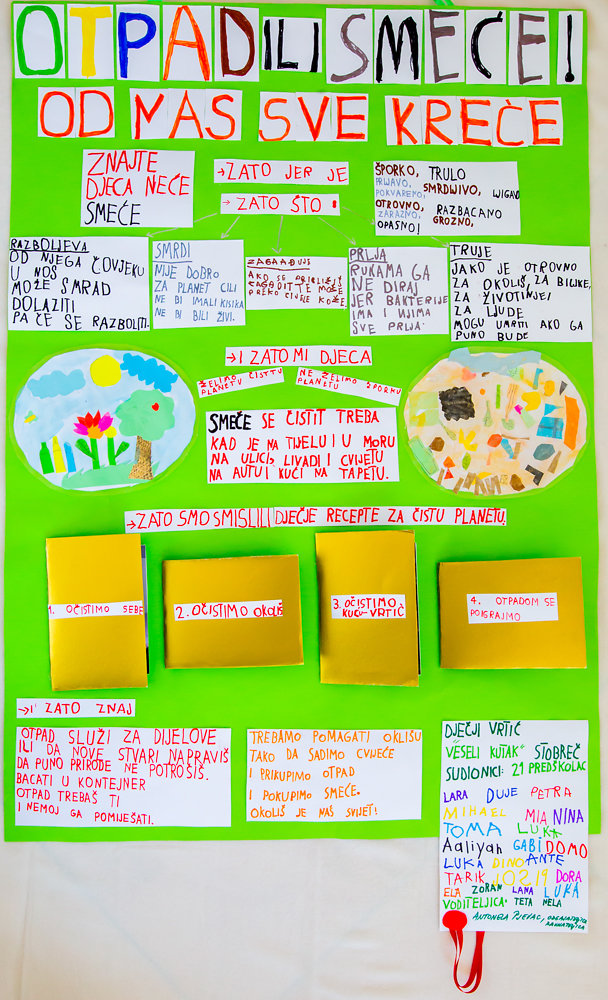 OTPAD ILI SMEĆE!
OD NAS SVE KREĆE
ZNAJTE
DJECA NEĆE
SMEĆE
→ZATO JER JE
→ ZATO ŠTO:
ŠPORKO, TRULO
PRLJAVO, SMRDLJIVO, LJIGAVO
POKVARENO,
OTROVNO, RAZBACANO
ZARAZNO, GROZNO,
OPASNO!
RAZBOLJEVA
OD NJEGA ČOVJEKU
U NOS
MOŽE SMRAD
DOLAZITI
PA ĆE SE RAZBOLITI.
SMRDI
NIJE DOBRO
ZA PLANET CILI
NE BI IMALI KISIKA
NE BI BILI ŽIVI.
ZAGAĐUJE
AKO SE PRIBLIŽIŠ
ZAGADIT TE MOŽE
PREKO CIJELE KOŽE.
PRLJA
RUKAMA GA
NE DIRAJ
JER BAKTERIJE
IMA I NJIMA
SVE PRLJA.
TRUJE
JAKO JE OTROVNO
ZA OKOLIŠ, ZA BILJKE,
ZA ŽIVOTINJE I
ZA LJUDE
MOGU UMRITI AKO GA
PUNO BUDE
→I ZATO MI DJECA
ŽELIMO ČISTU
PLANETU
NE ŽELIMO ŠPORKU
PLANETU
SMEĆE SE ČISTIT TREBA
KAD JE NA TIJELU I U MORU
NA ULICI, LIVADI I CVIJETU
NA AUTU I KUĆI NA TAPETU.
→ZATO SMO SMISLILI DJEČJE RECEPTE ZA ČISTU PLANETU.
1. OČISTIMO SEBE
2. OČISTIMO OKOLIŠ
3. OČISTIMO
KUĆU-VRTIĆ
4. OTPADOM SE
POIGRAJMO
→I ZATO ZNAJ
OTPAD SLUŽI ZA DIJELOVE
ILI DA NOVE STVARI NAPRAVIŠ
DA PUNO PRIRODE NE POTROŠIŠ.
BACATI U KONTEJNER
OTPAD TREBAŠ TI
I NEMOJ GA POMIJEŠATI.
TREBAMO POMAGATI OKLIŠU
TAKO DA SADIMO CVIJEĆE
I PRIKUPIMO OTPAD
I POKUPIMO SMEĆE.
OKOLIŠ JE NAŠ SVIJET!
DJEČJI VRTIĆ
"VESELI KUTAK" STOBREČ
SUDIONICI: 21 PREDŠKOLAC
LARA DUJE PETRA
MIHAEL MIA NINA
TOMA LUKA
Aaliyah GABI DOMO
LUKA DINO ANTE
TARIK JOSIP DORA
ELA ZORAN LANA LUKA
VODITELJICA: TETA NELA
ANTONELA PJEVAC,